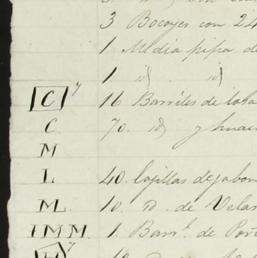 3 Bocoyes con 24
1 Media pipa de
1 id id
C y 16 Barriles de
C 70. id y
M
L 40 Cajillas de jabon
M 10 id. de Velas
IMM 1 Barrl. de